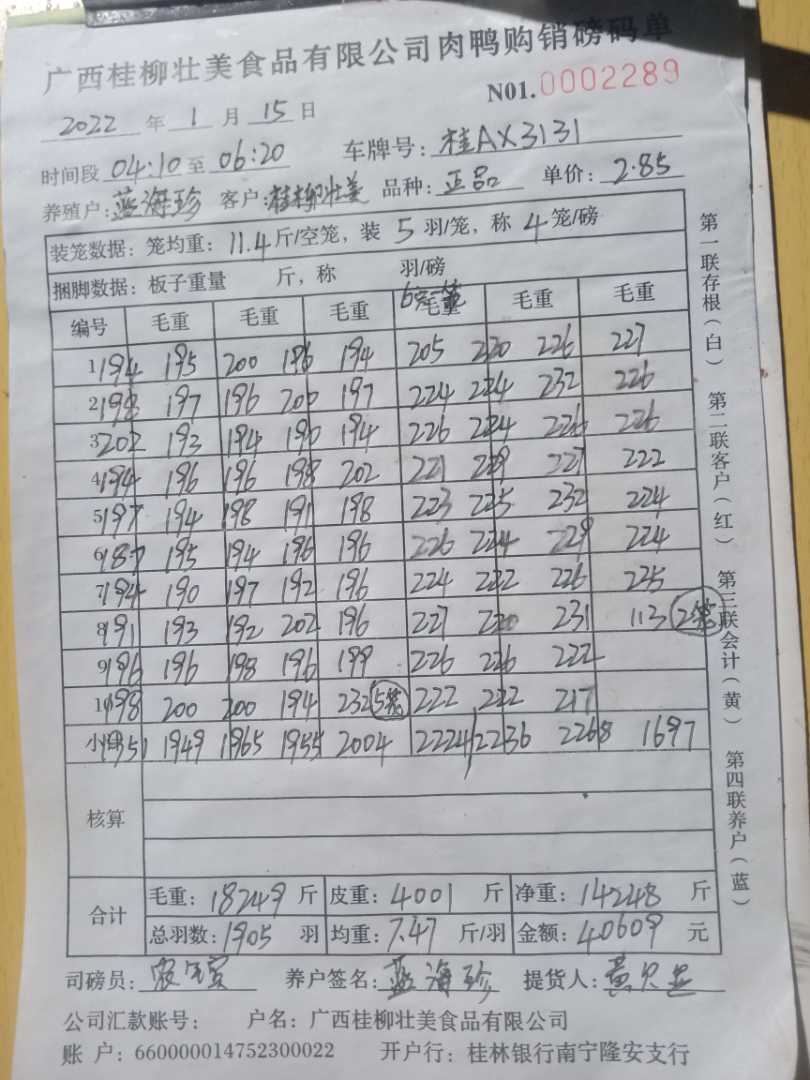 广西桂柳壮美食品有限公司肉鸭购销磅码单
N01.0002289
2022 年 1 月 15 日
时间段 04:10 至 06:20 车牌号: 桂AX3131
养殖户: 蓝海珍 客户: 桂柳壮美 品种: 正品 单价: 2.85
装笼数据: 笼均重: 11.4 斤/空笼, 装 5 羽/笼, 称 4 笼/磅
捆脚数据: 板子重量 斤, 称 羽/磅
编号 毛重 毛重 毛重 毛重 毛重 毛重
1 194 195 200 196 194 205 220 226 227
2 198 197 196 200 197 224 224 232 226
3 202 193 194 190 194 226 224 226 226
4 194 196 196 198 202 221 229 227 222
5 197 194 198 191 198 223 225 232 224
6 187 195 194 196 196 226 224 229 224
7 194 190 197 192 196 224 222 226 225
8 191 193 192 202 196 227 220 231 113 2笼
9 196 196 198 196 199 226 226 222
10 198 200 200 194 232 5笼 222 222 217
小计 1951 1949 1965 1955 2004 2224 2236 2268 1697
核算
合计
毛重: 18249 斤 皮重: 4001 斤 净重: 14248 斤
总羽数: 1905 羽 均重: 7.47 斤/羽 金额: 40609 元
司磅员: 养户签名: 蓝海珍 提货人: 黄
公司汇款账号: 户名: 广西桂柳壮美食品有限公司
账 户: 660000014752300022 开户行: 桂林银行南宁隆安支行
第一联存根(白) 第二联客户(红) 第三联会计(黄) 第四联养户(蓝)